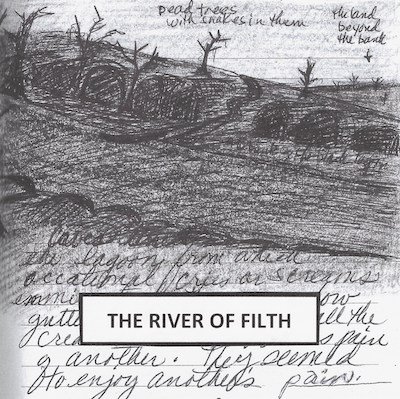 Dead trees
with snakes in them
the land
beyond
the bank
Caves
the lagoon from which
occational cries or screams
low
gutt all the
crea pain
of another. They seemed
to enjoy anothers pain.
THE RIVER OF FILTH